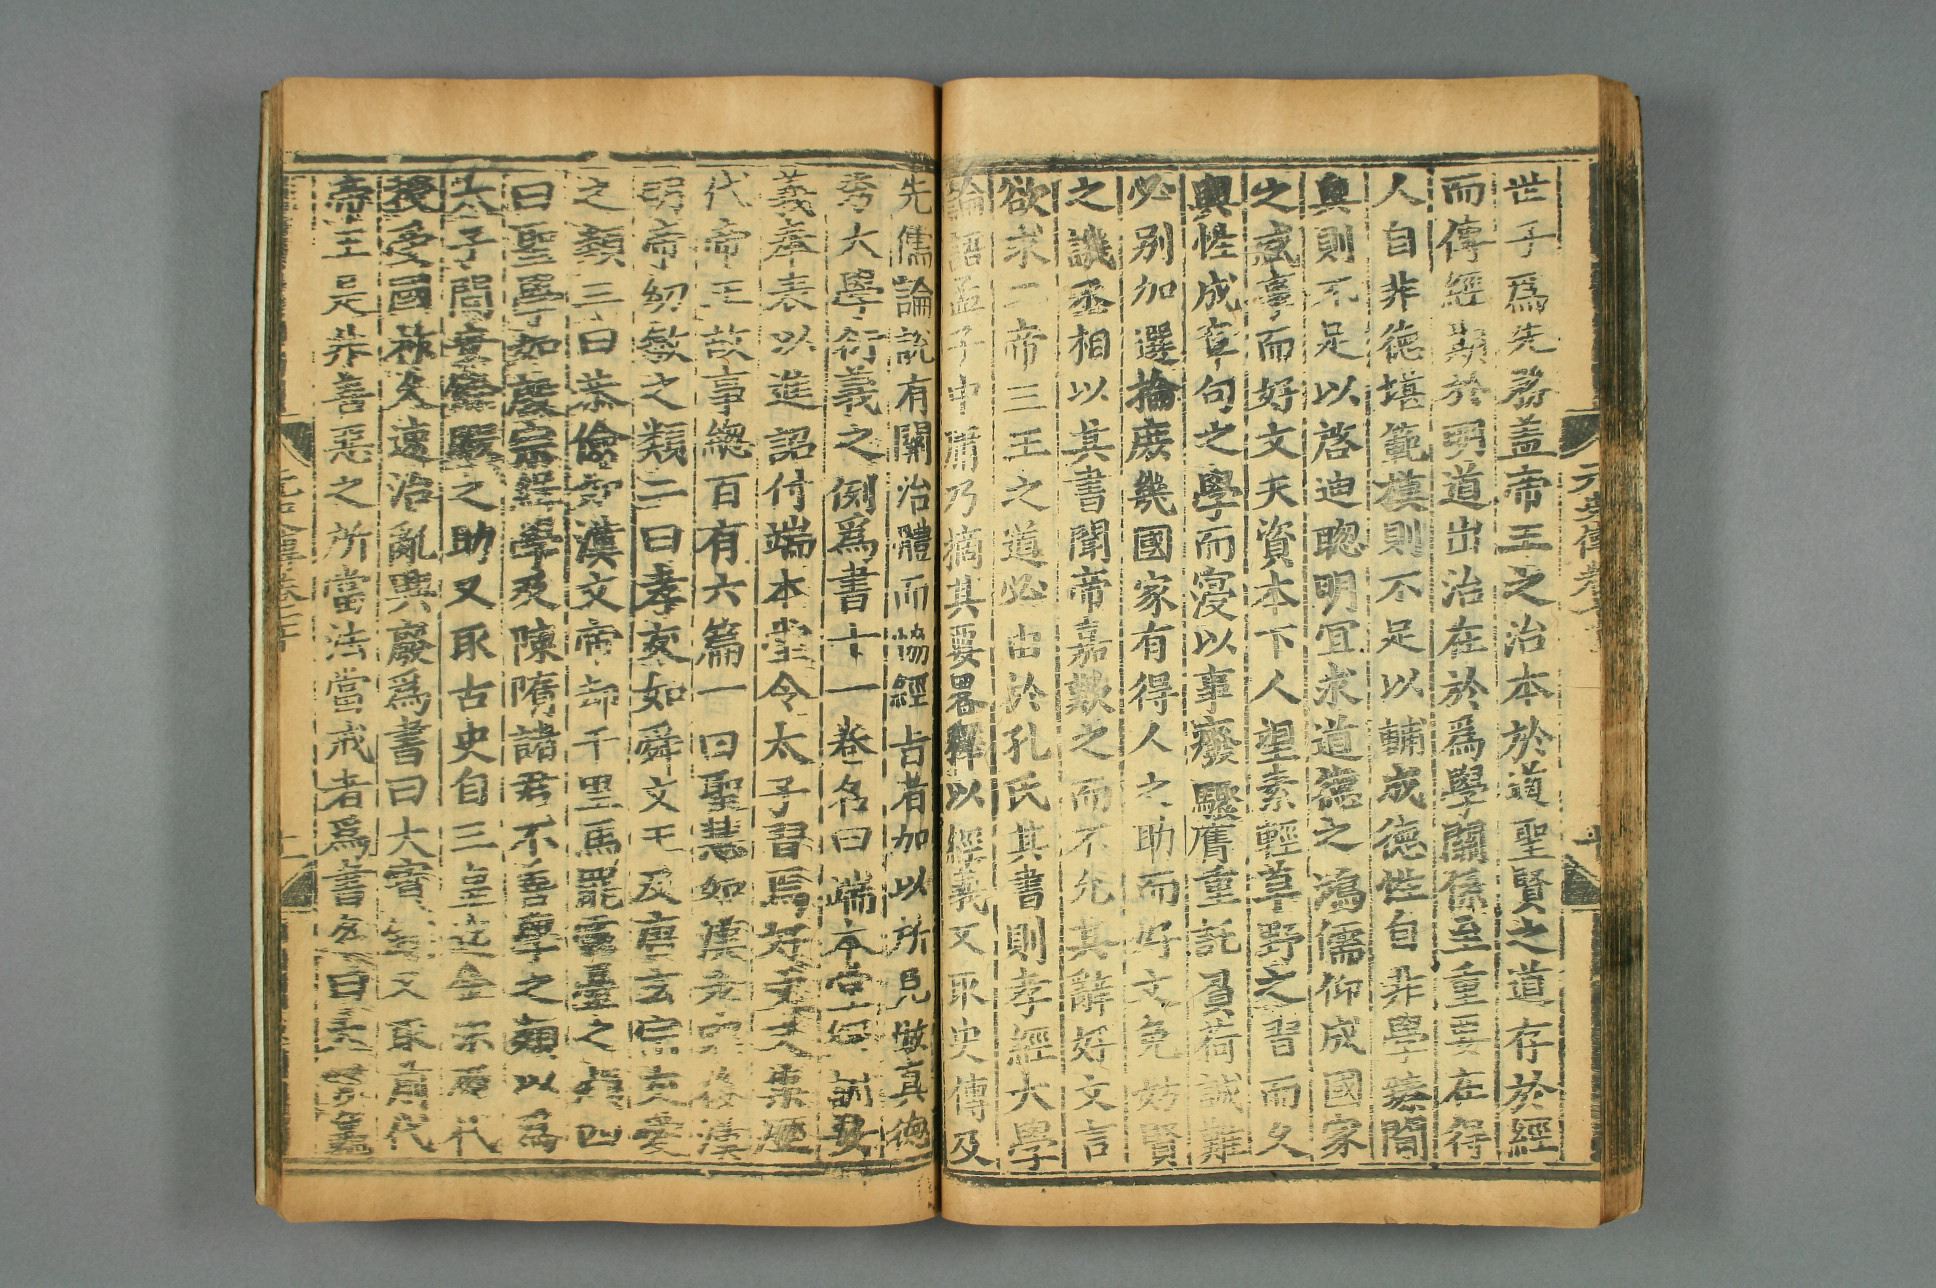 世子爲先務盖帝王之治本於道聖賢之道存於經
而傳經期於明道出治在於爲學關係至重要在得
人自非德堪範模則不足以輔成德性自非學臻閫
奥則不足以啓迪聰明冝求道德之鴻儒仰成國家
之盛事而好文天資本下人望素輕草野之習而久
與性成章句之學而寖以事廢驟膺重託負荷誠難
必別加選掄庶幾國家有得人之助而好文免妨賢
之譏丞相以其書聞帝嘉歎之而不允其辭好文言
欲求二帝三王之道必由於孔氏其書則孝經大學
論語孟子中庸乃摘其要畧釋以經義又取史傳及
先儒論說有關治體而恊經旨者加以所見倣真德
秀大學衍義之例爲書十一卷名曰端本堂經訓要
義奉表以進詔付端本堂令太子習焉好文又集歷
代帝王故事緫百有六篇一曰聖慧如漢
明帝幼敏之類二曰孝友如舜文王及唐玄宗友愛
之類三曰恭儉如漢文帝却千里馬罷露臺之類四
曰聖學如殷宗緝學及陳隋諸君不善學之類以爲
太子問安餘暇之助又取古史自三皇迄金宋歷代
授受國祚久速治亂興廢爲書曰大寳錄又取前代
帝王是非善惡之所當法當戒者爲書名曰大寳龜
元史傳卷
十
十一